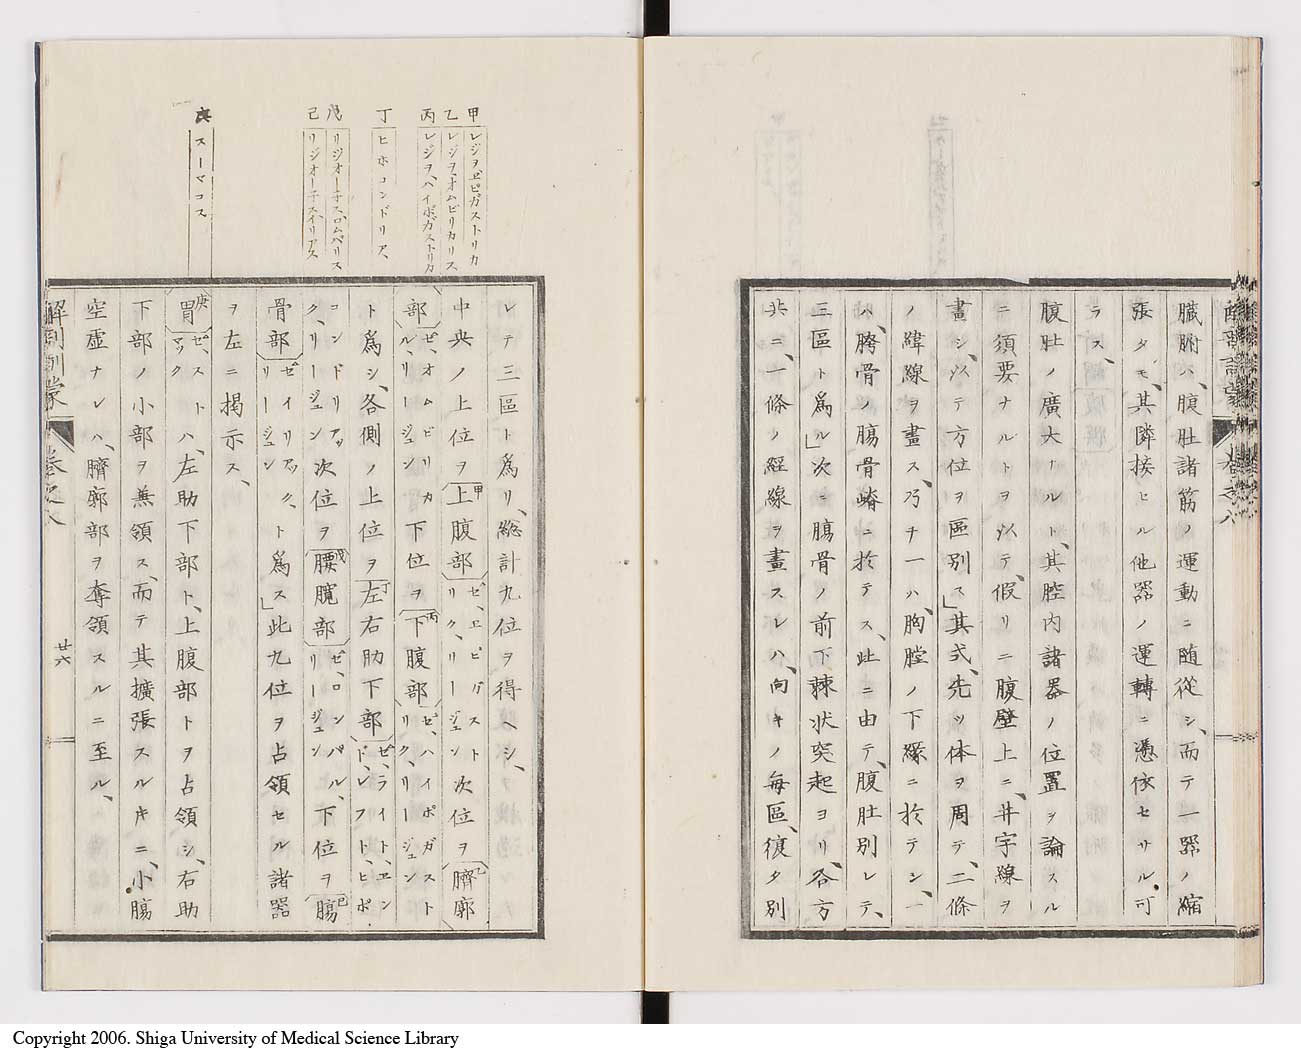 臓腑ハ、腹肚諸筋ノ運動ニ随從シ、而テ 一器ノ縮
張タモ、其隣接セル他器ノ運轉ニ憑依セサル可
ラス、
腹肚ノ廣大ナルト、其腔内諸器ノ位置ヲ論スル
ニ須要ナルトヲ以テ、假リニ腹壁上ニ、井字線ヲ
畫シ、以テ方位ヲ區別ス」其式、先ツ体ヲ周テ、二條
ノ緯線ヲ畫ス、乃チ一ハ、胸膛ノ下緣ニ於テシ、一
ハ、胯骨ノ腸骨﨑ニ於テス、此ニ由テ、腹肚別レテ、
三區ト爲ル」次ニ腸骨ノ前下棘状突起ヨリ、各方
共ニ、一條ノ経線ヲ畫スレハ、向キノ毎區、復タ別
甲 レジヲ、ヱピガストリカ
乙 レジヲ、オムビリカリス
丙 レジヲ、ハイポガストリカ
丁 ヒホコンドリア、
戊 リジオーチス、ロムバリス
己 リジオーチス、イリアス
庚 スーマコス
レテ三區ト爲リ、総計九位ヲ得ヘシ、
中央ノ上位ヲ上甲腹部ゼ、ヱピガストリク、リージェン次位ヲ臍乙廓
部ゼ、オムビリカル、リージェン下位ヲ下丙腹部ゼ、ハイポガストリク、リージェン
ト爲シ、各側ノ上位ヲ左丁右肋下部ゼ、ライト、ヱンド、レフト、ヒポ
コンドリアック、リージェン次位ヲ腰戊髖部ゼ、ロンバル、リージェン下位ヲ腸己
骨部ゼイリアック、リージェント爲ス」此九位ヲ占領セル諸器
ヲ左ニ掲示ス、
胃庚ゼ、ストマックハ、左肋下部ト、上腹部トヲ占領シ、右肋
下部ノ小部ヲ兼領ス、而テ其擴張スルキニ、小腸
空虚ナレハ、臍廓部ヲ奪領スルニ至ル、
解剖訓蒙 巻之八 廿六
Copyright 2006. Shiga University of Medical Science Library